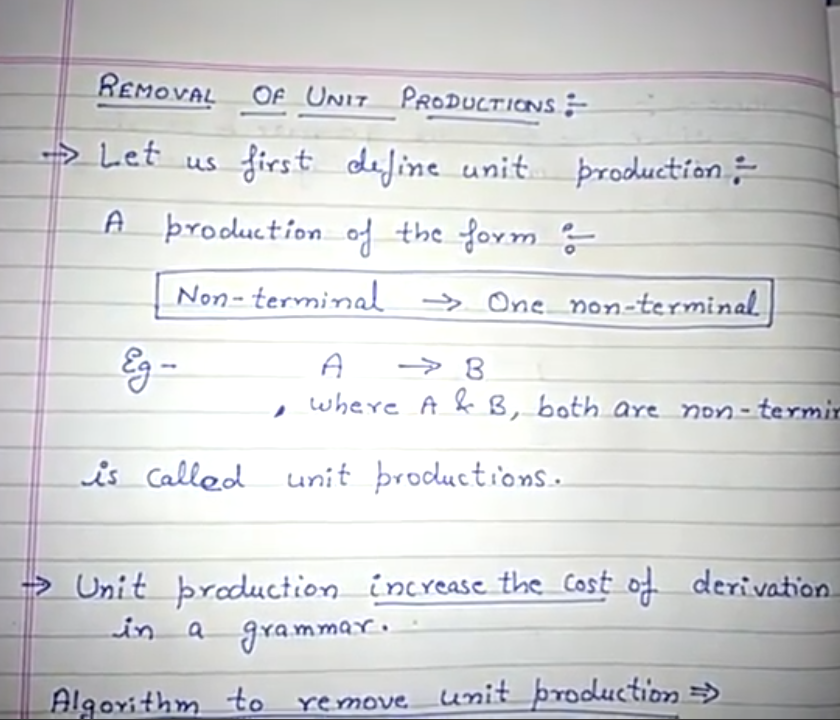 REMOVAL OF UNIT PRODUCTIONS :-
→ Let us first define unit production :-
A production of the form :-
Non-terminal → One non-terminal
Eg - A → B
, where A & B, both are non-termin
is called unit productions.
→ Unit production increase the cost of derivation
in a grammar.
Algorithm to remove unit production ⇒